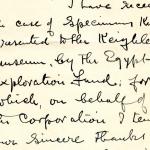 I have rece
he case of Specimens k
resented to the Keighle
museum, by the Egypt
exploration Fund; for
which, on behalf of
the Corporation I ten
our sincere thanks